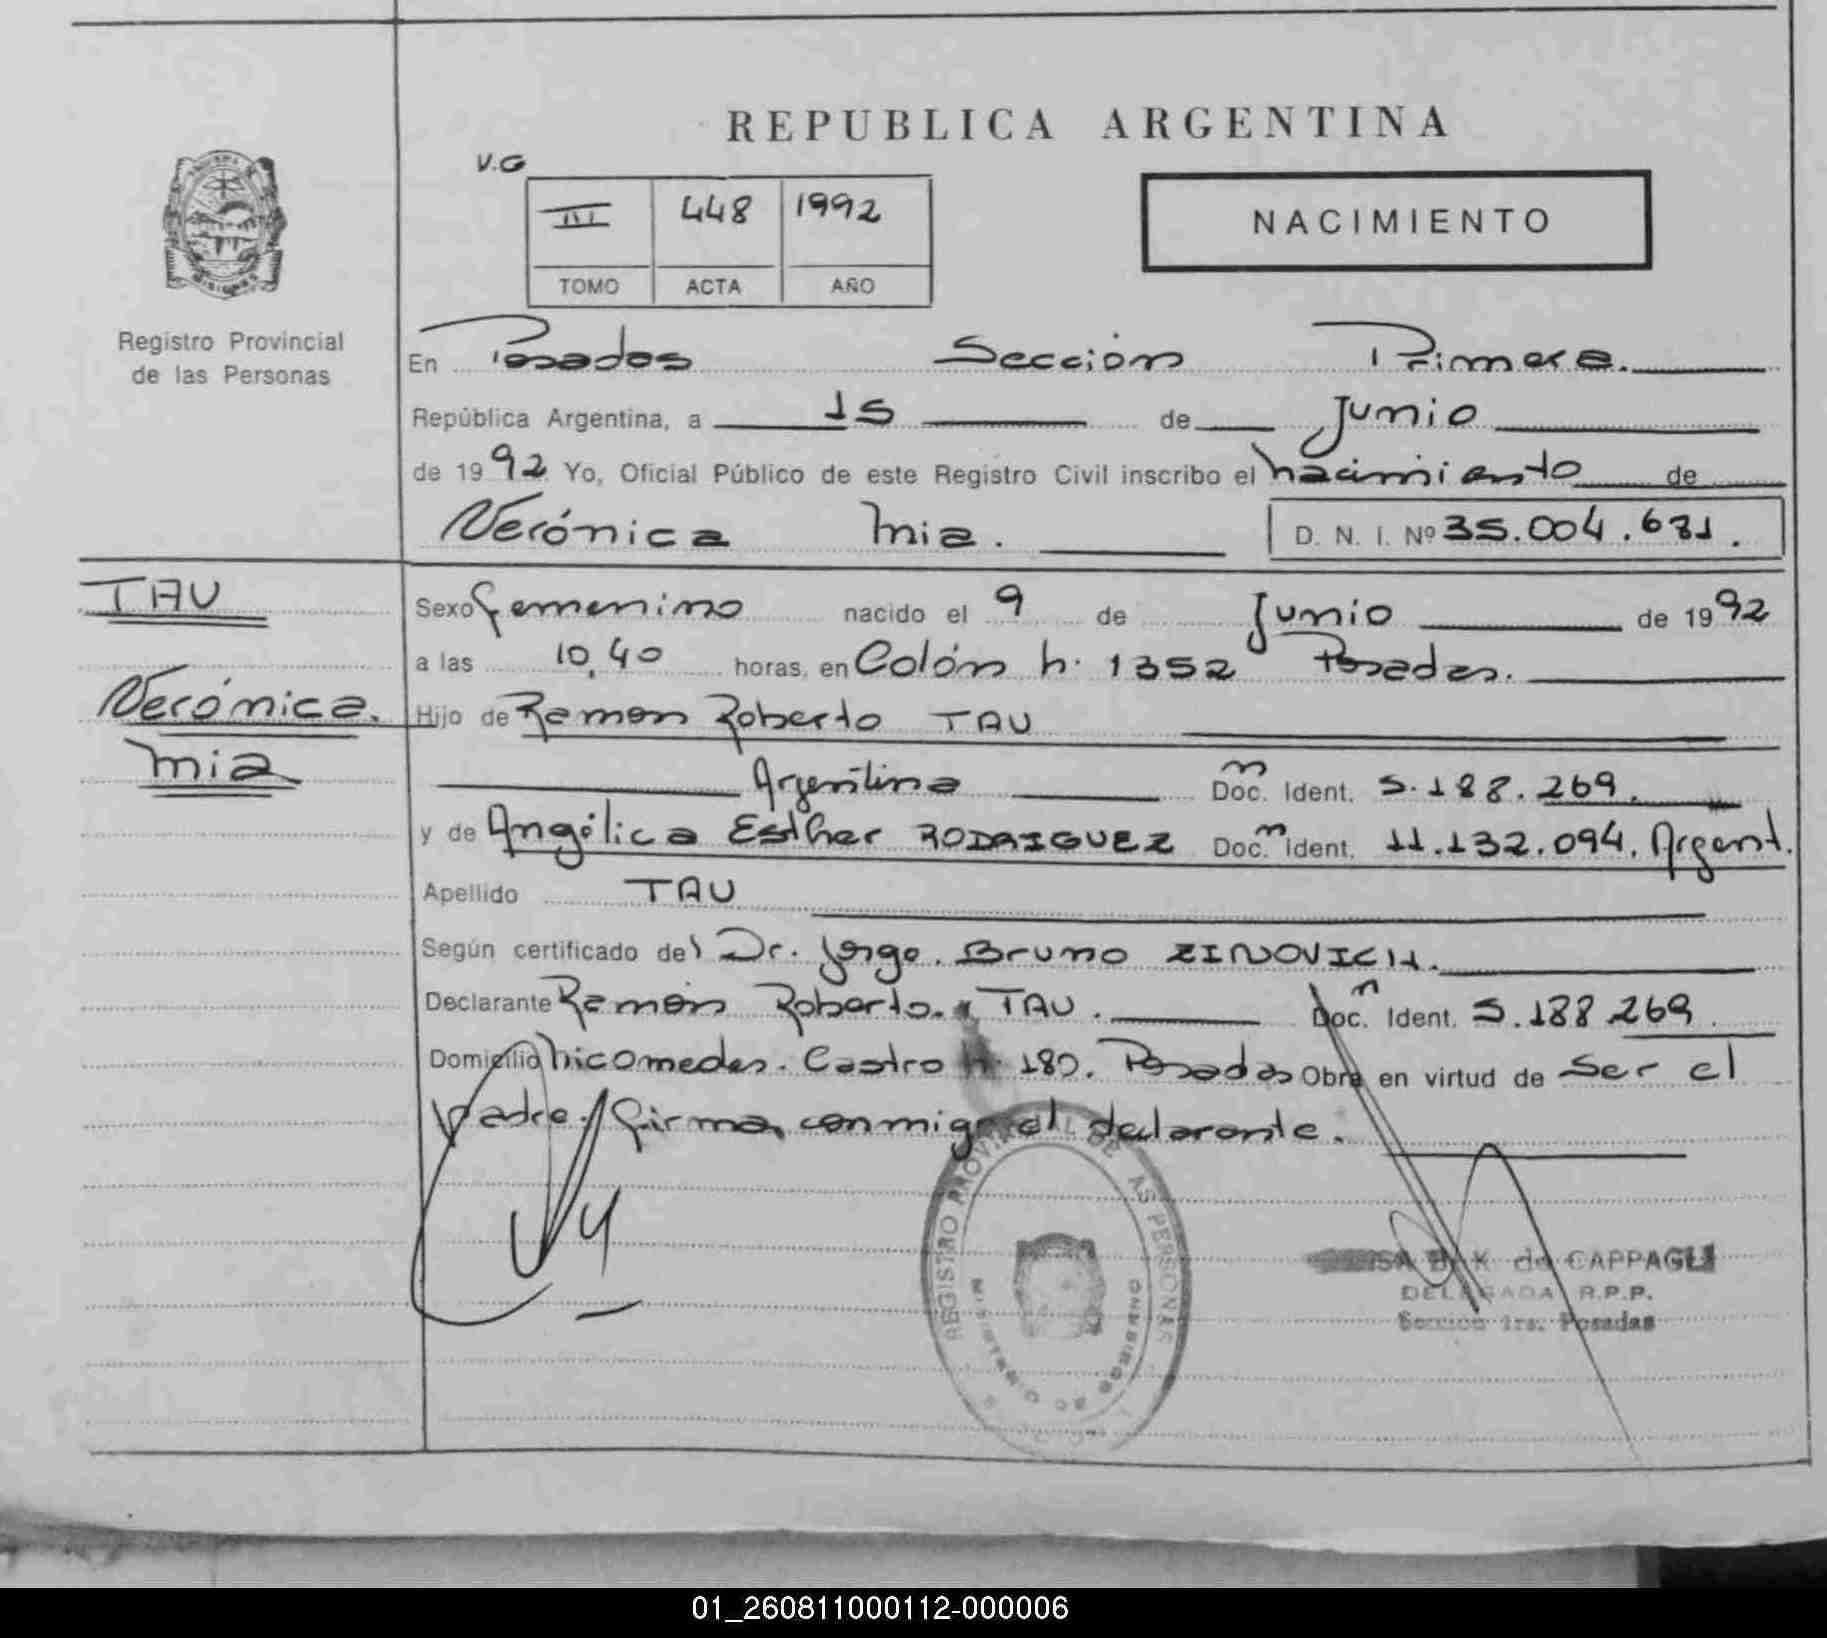 REPUBLICA ARGENTINA
V.G
III 448 1992
TOMO ACTA AÑO
NACIMIENTO
Registro Provincial
de las Personas
En Posadas Sección Primera.
República Argentina, a 15 de Junio
de 1992 Yo, Oficial Público de este Registro Civil inscribo el nacimiento de
Verónica Mia. D. N. I. Nº 35.004.681.
TAU
Verónica.
Mia
Sexo femenino nacido el 9 de Junio de 1992
a las 10,40 horas, en Colón n. 1352 Posadas.
Hijo de Ramon Roberto TAU
Argentina Doc. Ident. 5.188.269.
y de Angélica Esther RODRIGUEZ Doc. Ident. 11.132.094. Argent.
Apellido TAU
Según certificado del Dr. Jorge. Bruno ZINOVICH.
Declarante Ramón Roberto. TAU. Doc. Ident. 5.188.269
Domicilio Nicomedes. Castro n 180. Posadas Obra en virtud de ser el
padre. firma conmigo el declarante.
REGISTRO PROVINCIAL DE LAS PERSONAS
MINISTERIO DE GOBIERNO
K de CAPPAGLI
DELEGADA R.P.P.
Sección 1ra. Posadas
01_260811000112-000006